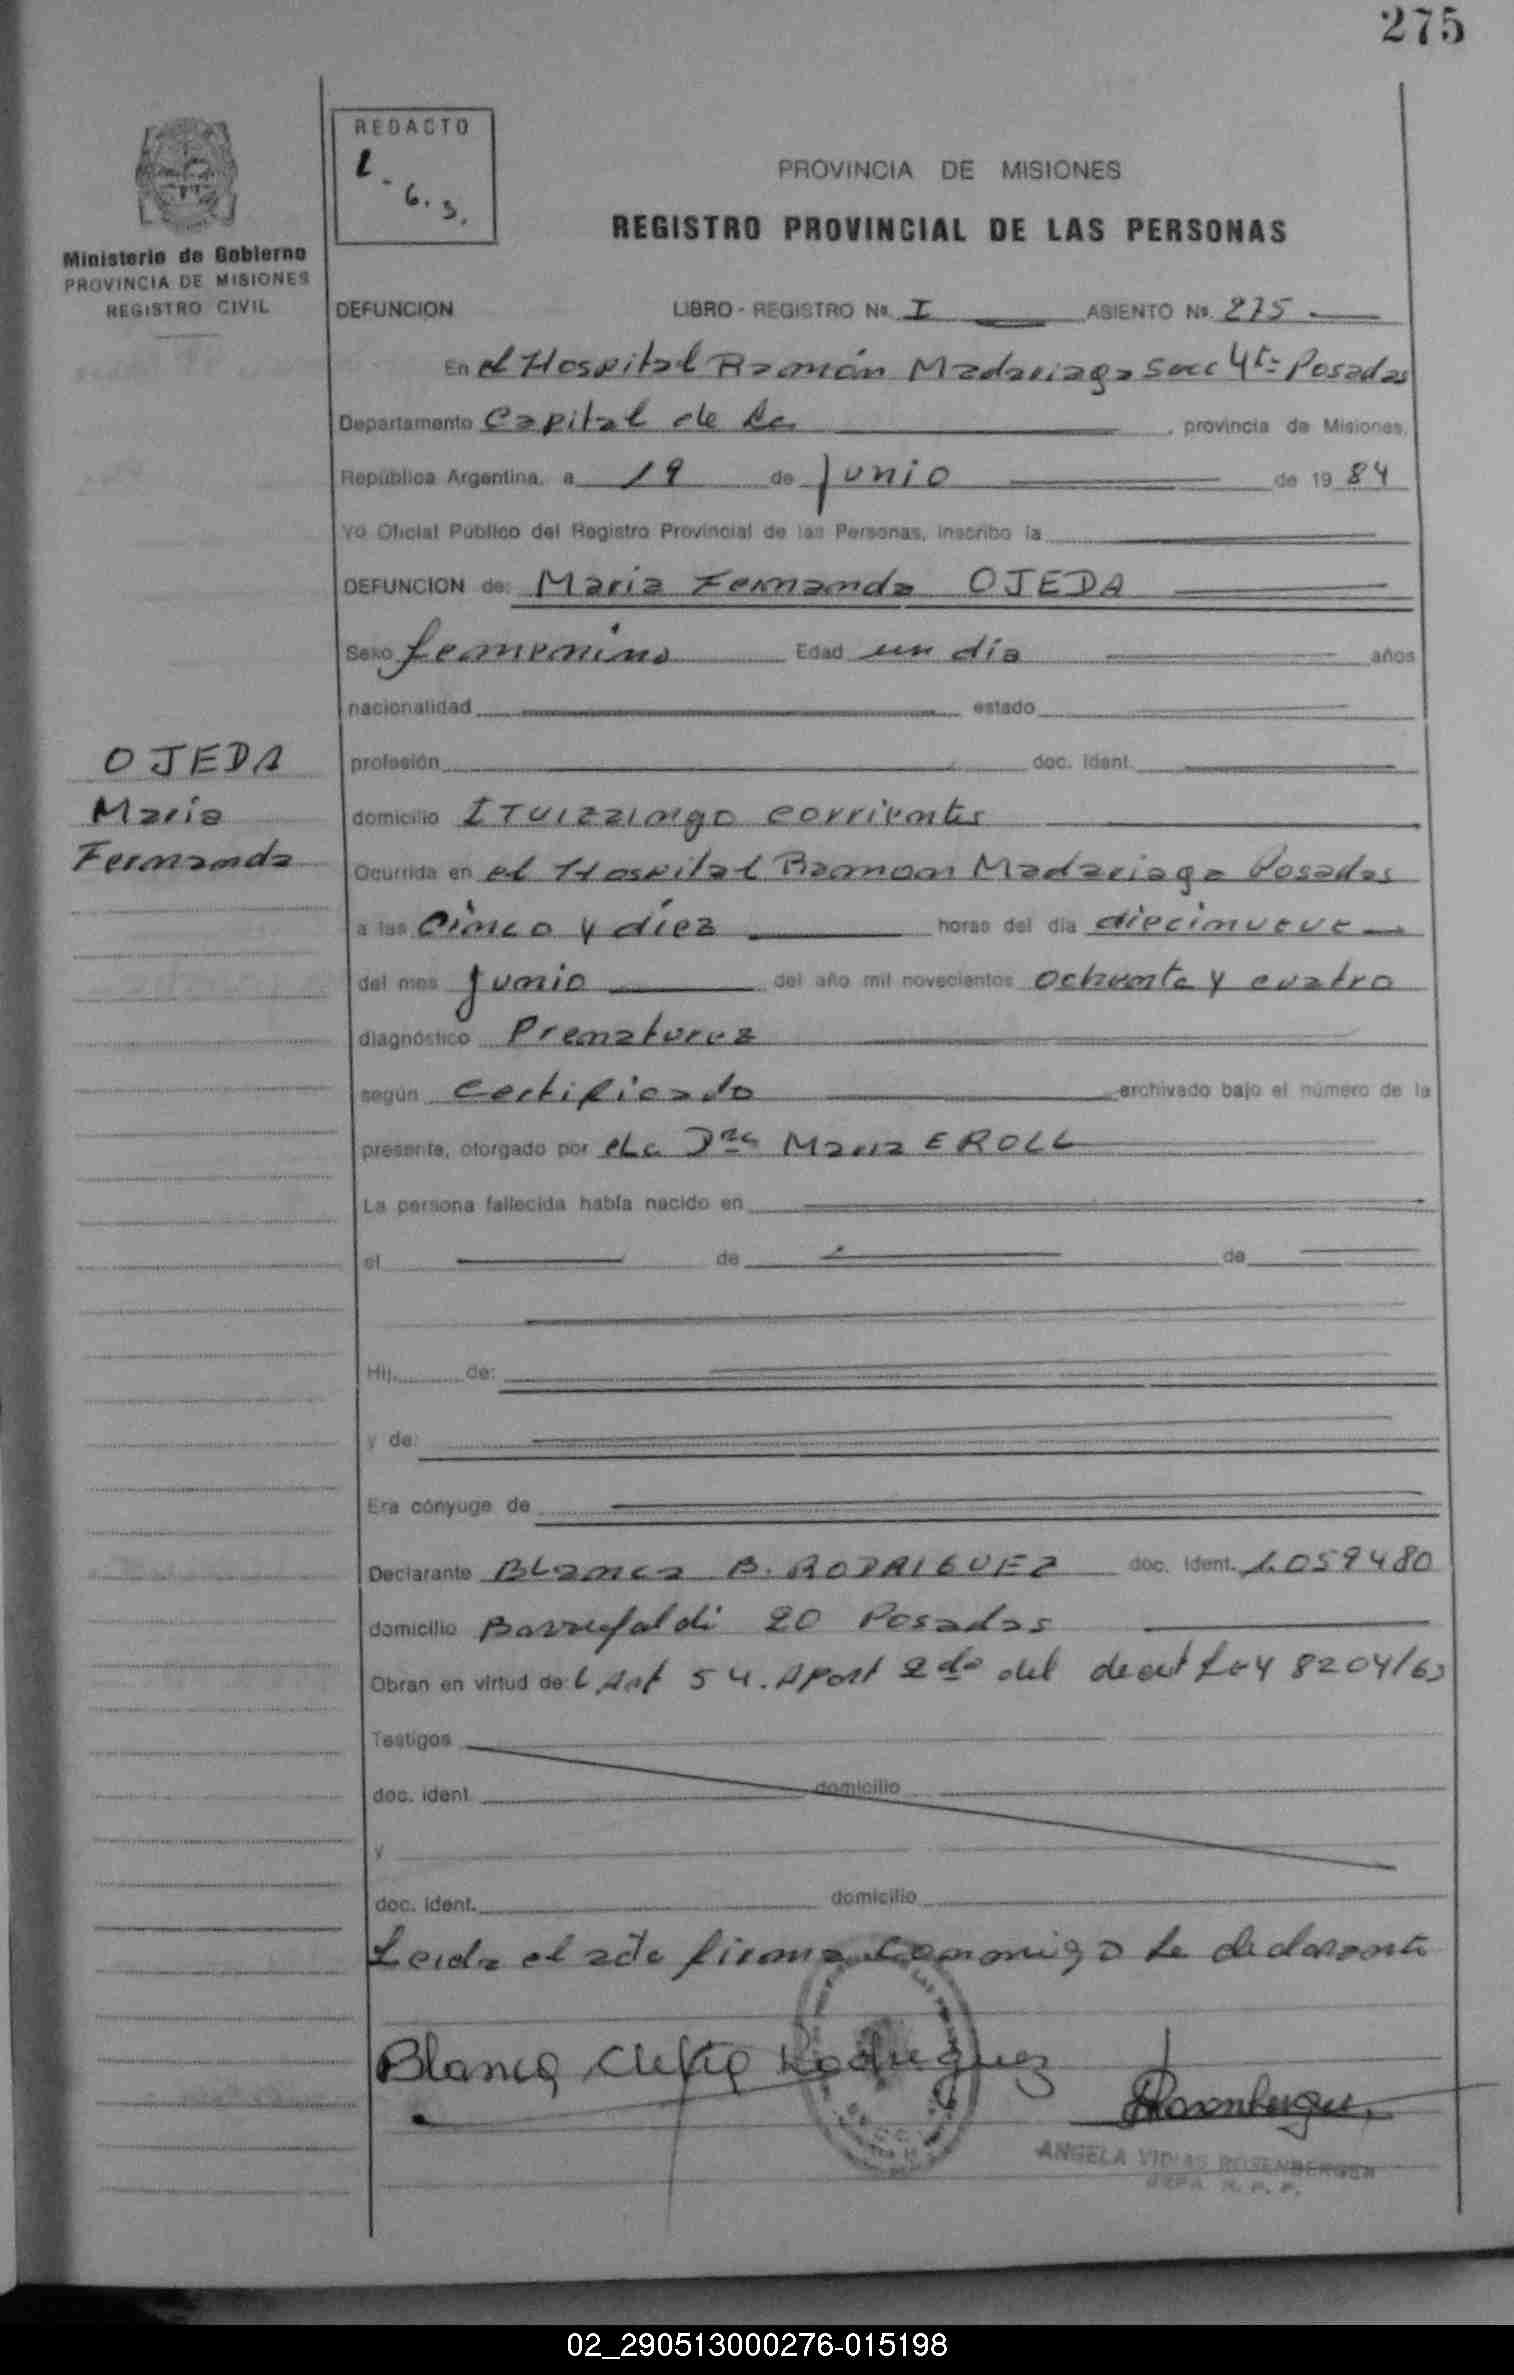 275
REDACTO
6.
PROVINCIA DE MISIONES
REGISTRO PROVINCIAL DE LAS PERSONAS
Ministerio de Gobierno
PROVINCIA DE MISIONES
REGISTRO CIVIL
DEFUNCION LIBRO - REGISTRO No. I ASIENTO No. 275
En el Hospital Ramón Madariaga Secc 4ta Posadas
Departamento Capital de la provincia de Misiones,
República Argentina, a 19 de Junio de 1984
Yo Oficial Público del Registro Provincial de las Personas, inscribo la
DEFUNCION de: Maria Fernanda OJEDA
Sexo femenino Edad un día años
nacionalidad estado
OJEDA
Maria
Fernanda
profesión doc. ident.
domicilio Ituizaingo corrientes
Ocurrida en el Hospital Ramon Madariaga Posadas
a las Cinco y diez horas del día diecinueve
del mes Junio del año mil novecientos ochenta y cuatro
diagnóstico Prematurez
según Certificado archivado bajo el número de la
presente, otorgado por Dra Maria EROLL
La persona fallecida había nacido en
el de de
Hij de:
y de:
Era cónyuge de
Declarante Blanca B. RODRIGUEZ doc. ident. 1.059480
domicilio Barrufaldi 20 Posadas
Obran en virtud de: l Art 54. Apart 2do del decret Ley 8204/63
Testigos
doc. ident. domicilio
y
doc. ident. domicilio
Leida el acta firma conmigo la declarante
Blanca Rodriguez
Rosenberger
ANGELA ROSENBERGER
JEFA R. P. P.
02_290513000276-015198